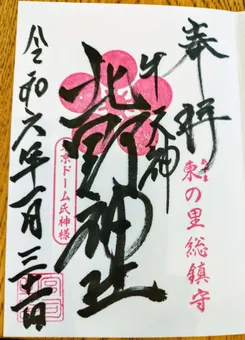 奉拝
東の里総鎮守
牛天神
北野神社
東京ドーム氏神様
令和六年一月三十一日